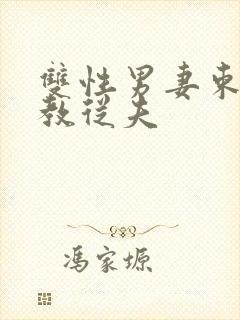 雙性男妻柬
教從夫
馮家塬